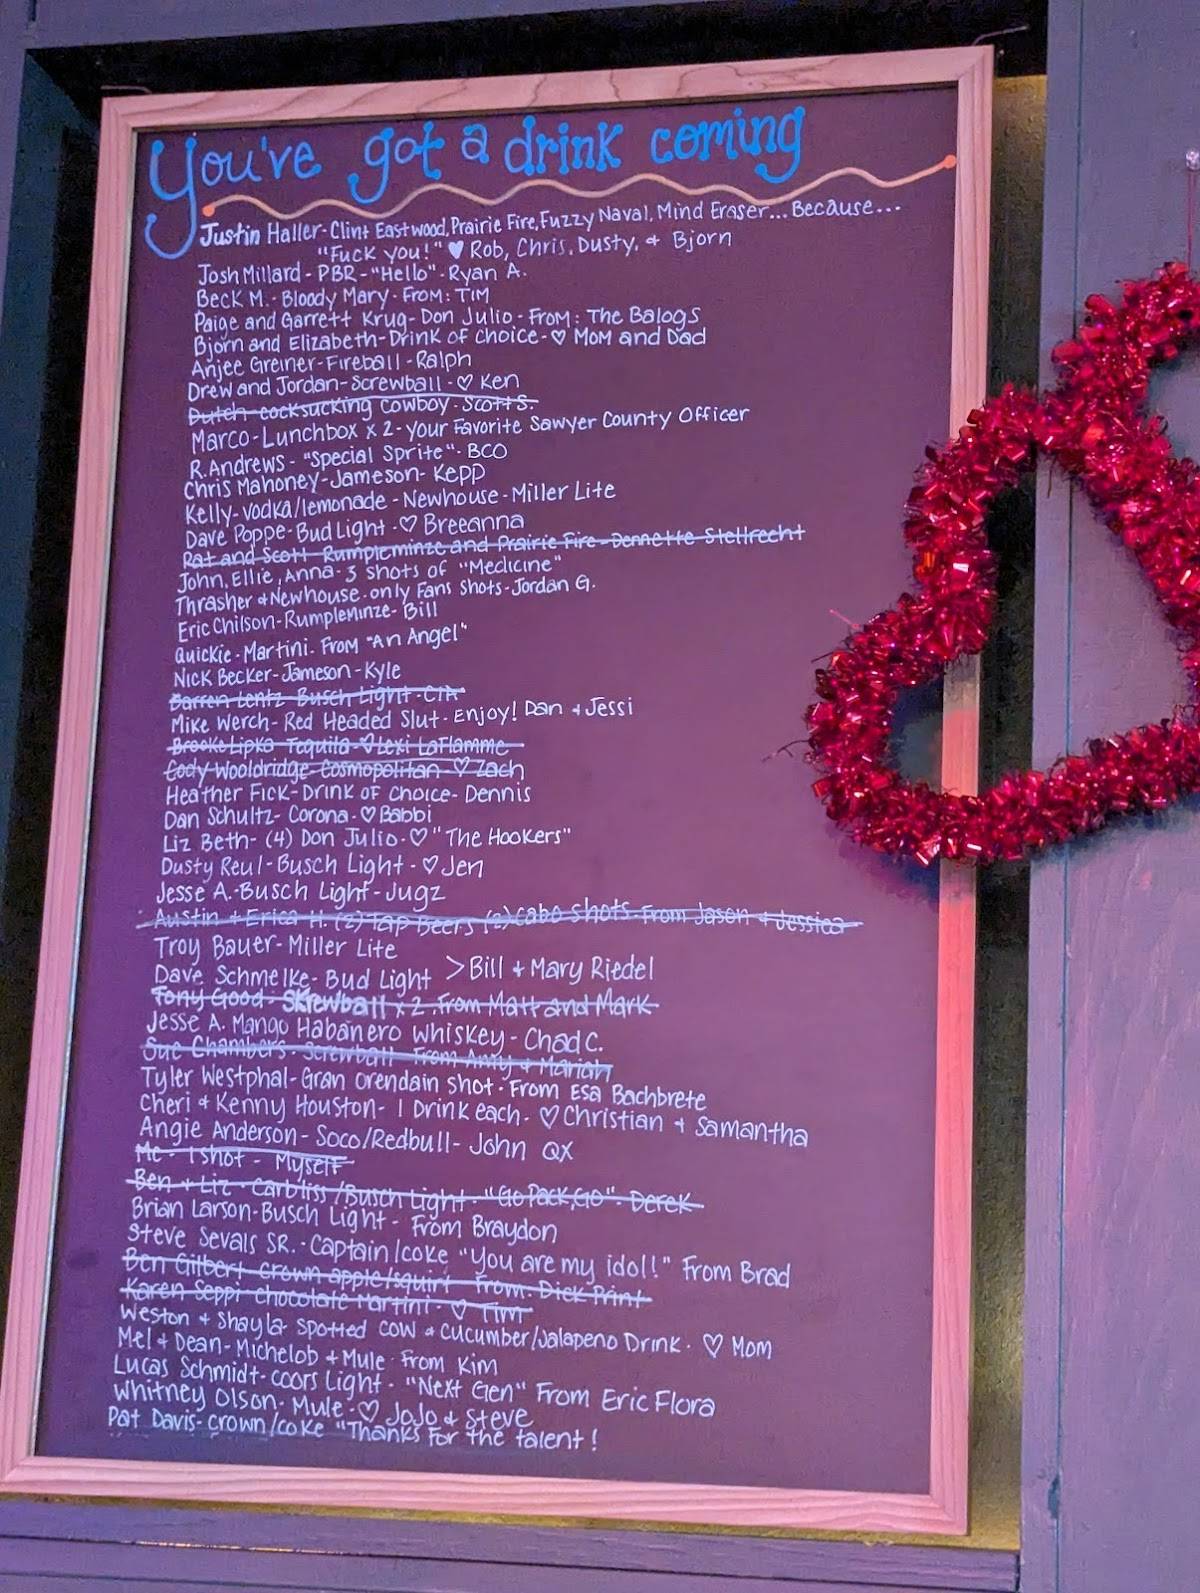 You've got a drink coming
Justin Haller-Clint Eastwood, Prairie Fire, Fuzzy Naval, Mind Eraser... Because...
"Fuck you!" ♥ Rob, Chris, Dusty, & Bjorn
Josh Millard - PBR - "Hello" - Ryan A.
Beck M. - Bloody Mary - From: Tim
Paige and Garrett Krug - Don Julio - From: The Balogs
Bjorn and Elizabeth - Drink of choice - ♡ Mom and Dad
Anjee Greiner - Fireball - Ralph
Drew and Jordan - Screwball - ♡ Ken
Dutch - cocksucking cowboy - Scott S.
Marco - Lunchbox x 2 - your Favorite Sawyer County Officer
R. Andrews - "Special Sprite" - BCO
Chris Mahoney - Jameson - Kepp
Kelly - vodka/lemonade - Newhouse - Miller Lite
Dave Poppe - Bud Light - ♡ Breeanna
Pat and Scott - Rumpleminze and Prairie Fire - Dennette Stellrecht
John, Ellie, Anna - 3 shots of "Medicine"
Thrasher & Newhouse - only Fans Shots - Jordan G.
Eric Chilson - Rumpleminze - Bill
Quickie - Martini - From "An Angel"
Nick Becker - Jameson - Kyle
Darren Lentz - Busch Light -
Mike Werch - Red Headed Slut - Enjoy! Dan & Jessi
Brooke Lipko - Tequila - ♡ Lexi LaFlamme
Cody Wooldridge - Cosmopolitan - ♡ Zach
Heather Fick - Drink of Choice - Dennis
Dan Schultz - Corona - ♡ Babbi
Liz Beth - (4) Don Julio - ♡ "The Hookers"
Dusty Reul - Busch Light - ♡ Jen
Jesse A. - Busch Light - Jugz
Austin + Erica H. (2) Tap Beers (2) Cabo shots - From Jason & Jessica
Troy Bauer - Miller Lite
Dave Schmelke - Bud Light > Bill + Mary Riedel
Tony Good - Skrewball x 2 - From Matt and Mark
Jesse A. Mango Habanero Whiskey - Chad C.
Sue Chambers - Screwball From Amy & Mariah
Tyler Westphal - Gran Orendain shot - From Esa Bachbrete
Cheri & Kenny Houston - 1 Drink each - ♡ Christian & Samantha
Angie Anderson - Soco/Redbull - John QX
Me - 1 shot - Myself
Ben + Liz - Carbliss/Busch Light - "Go Pack, Go" - Derek
Brian Larson - Busch Light - From Braydon
Steve Sevals SR. - Captain/coke "You are my idol!" From Brad
Ben Gilbert - crown apple/squirt - From: Dick Print
Karen Seppi - chocolate Martini - ♡ Tim
Weston & Shayla - Spotted Cow & Cucumber/Jalapeno Drink - ♡ Mom
Mel & Dean - Michelob & Mule - From Kim
Lucas Schmidt - coors Light - "Next Gen" From Eric Flora
Whitney Olson - Mule - ♡ JoJo & Steve
Pat Davis - crown/coke "Thanks for the talent!